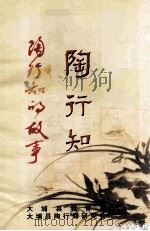 陶行知的故事
陶行知
大埔县
大埔县陶行知研究会